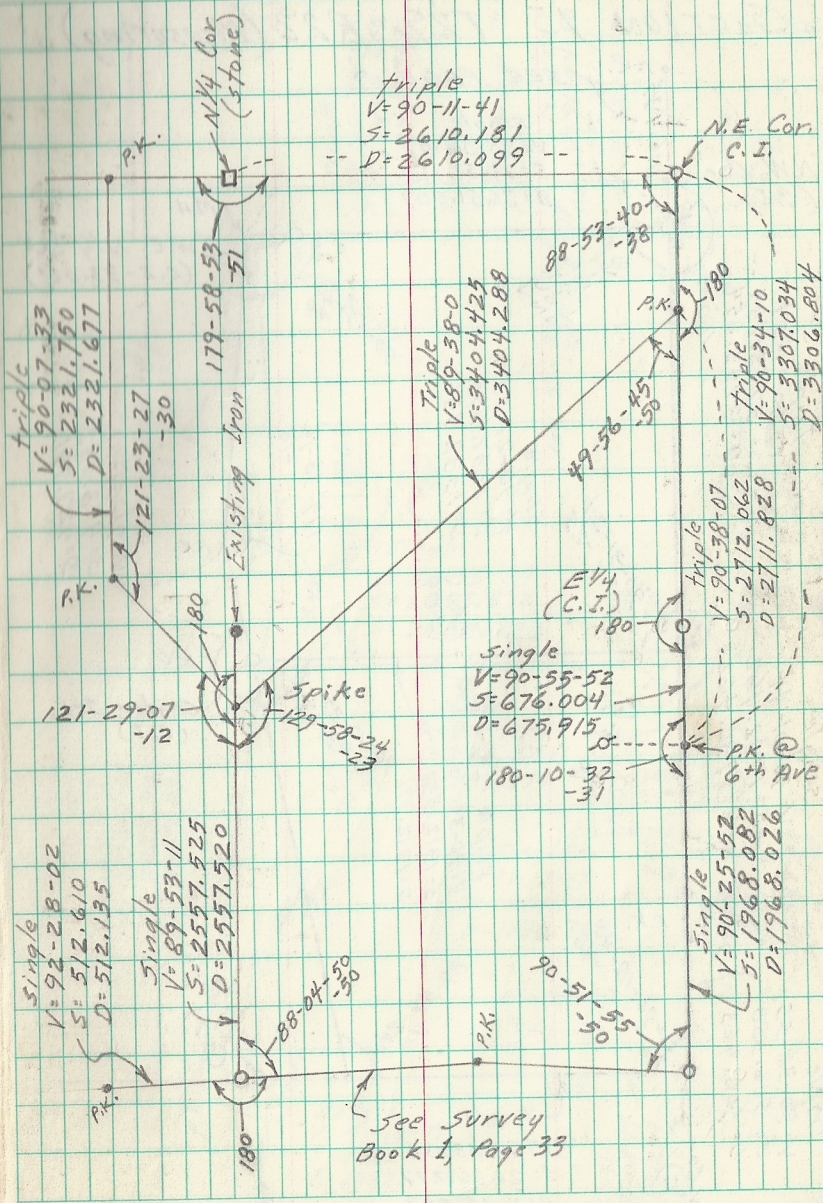 triple
V=90-11-41
S=2610.181
D=2610.099
N 1/4 Cor
(stone)
P.K.
N.E. Cor.
C.I.
179-58-53
-51
88-53-40
-38
triple
V=90-07-33
S=2321.750
D=2321.677
121-23-27
-30
P.K.
Existing Iron
Triple
V=89-38-0
S=3404.425
D=3404.288
P.K.
180
49-56-45
-50
triple
V=90-34-10
S=3307.034
D=3306.804
triple
V=90-38-07
S=2712.062
D=2711.828
E 1/4
(C.I.)
180
180
Spike
121-29-07
-12
129-58-24
-23
Single
V=90-55-52
S=676.004
D=675.915
180-10-32
-31
P.K. @
6th Ave
Single
V=92-28-02
S=512.610
D=512.135
Single
V=89-53-11
S=2557.525
D=2557.520
Single
V=90-25-52
S=1968.082
D=1968.026
88-04-50
-50
90-51-55
-50
P.K.
P.K.
180
See Survey
Book 1, Page 33